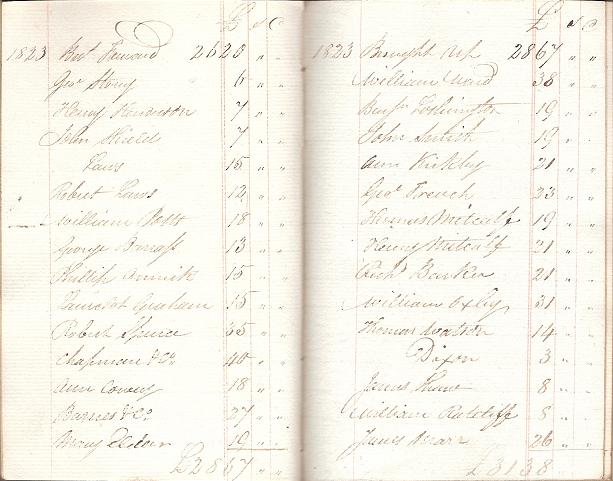 £ s d
1823 Brot Forward 2620 " "
Geo. Story 6 " "
Henry Henderson 7 " "
John Shield 7 " "
Laws 15 " "
Robert Laws 12 " "
William Potts 18 " "
George Barrass 13 " "
Phillip Annick 15 " "
Graham 15 " "
Robert Spence 35 " "
Chapman & Co. 40 " "
Ann Cowey 18 " "
Barnes & Co. 27 " "
Mary 19 " "
£2867 " "
£ s d
1823 Brought up 2867 " "
William Ward 38 " "
Benjn 19 " "
John Smith 19 " "
Ann Kirkby 21 " "
Geo. French 23 " "
Thomas Metcalf 19 " "
Henry Metcalf 21 " "
Richd Barker 21 " "
William Oxley 31 " "
Thomas Watson 14 " "
Dixon 3 " "
James 8 " "
William Ratcliffe 8 " "
James Marr 26 " "
£3138